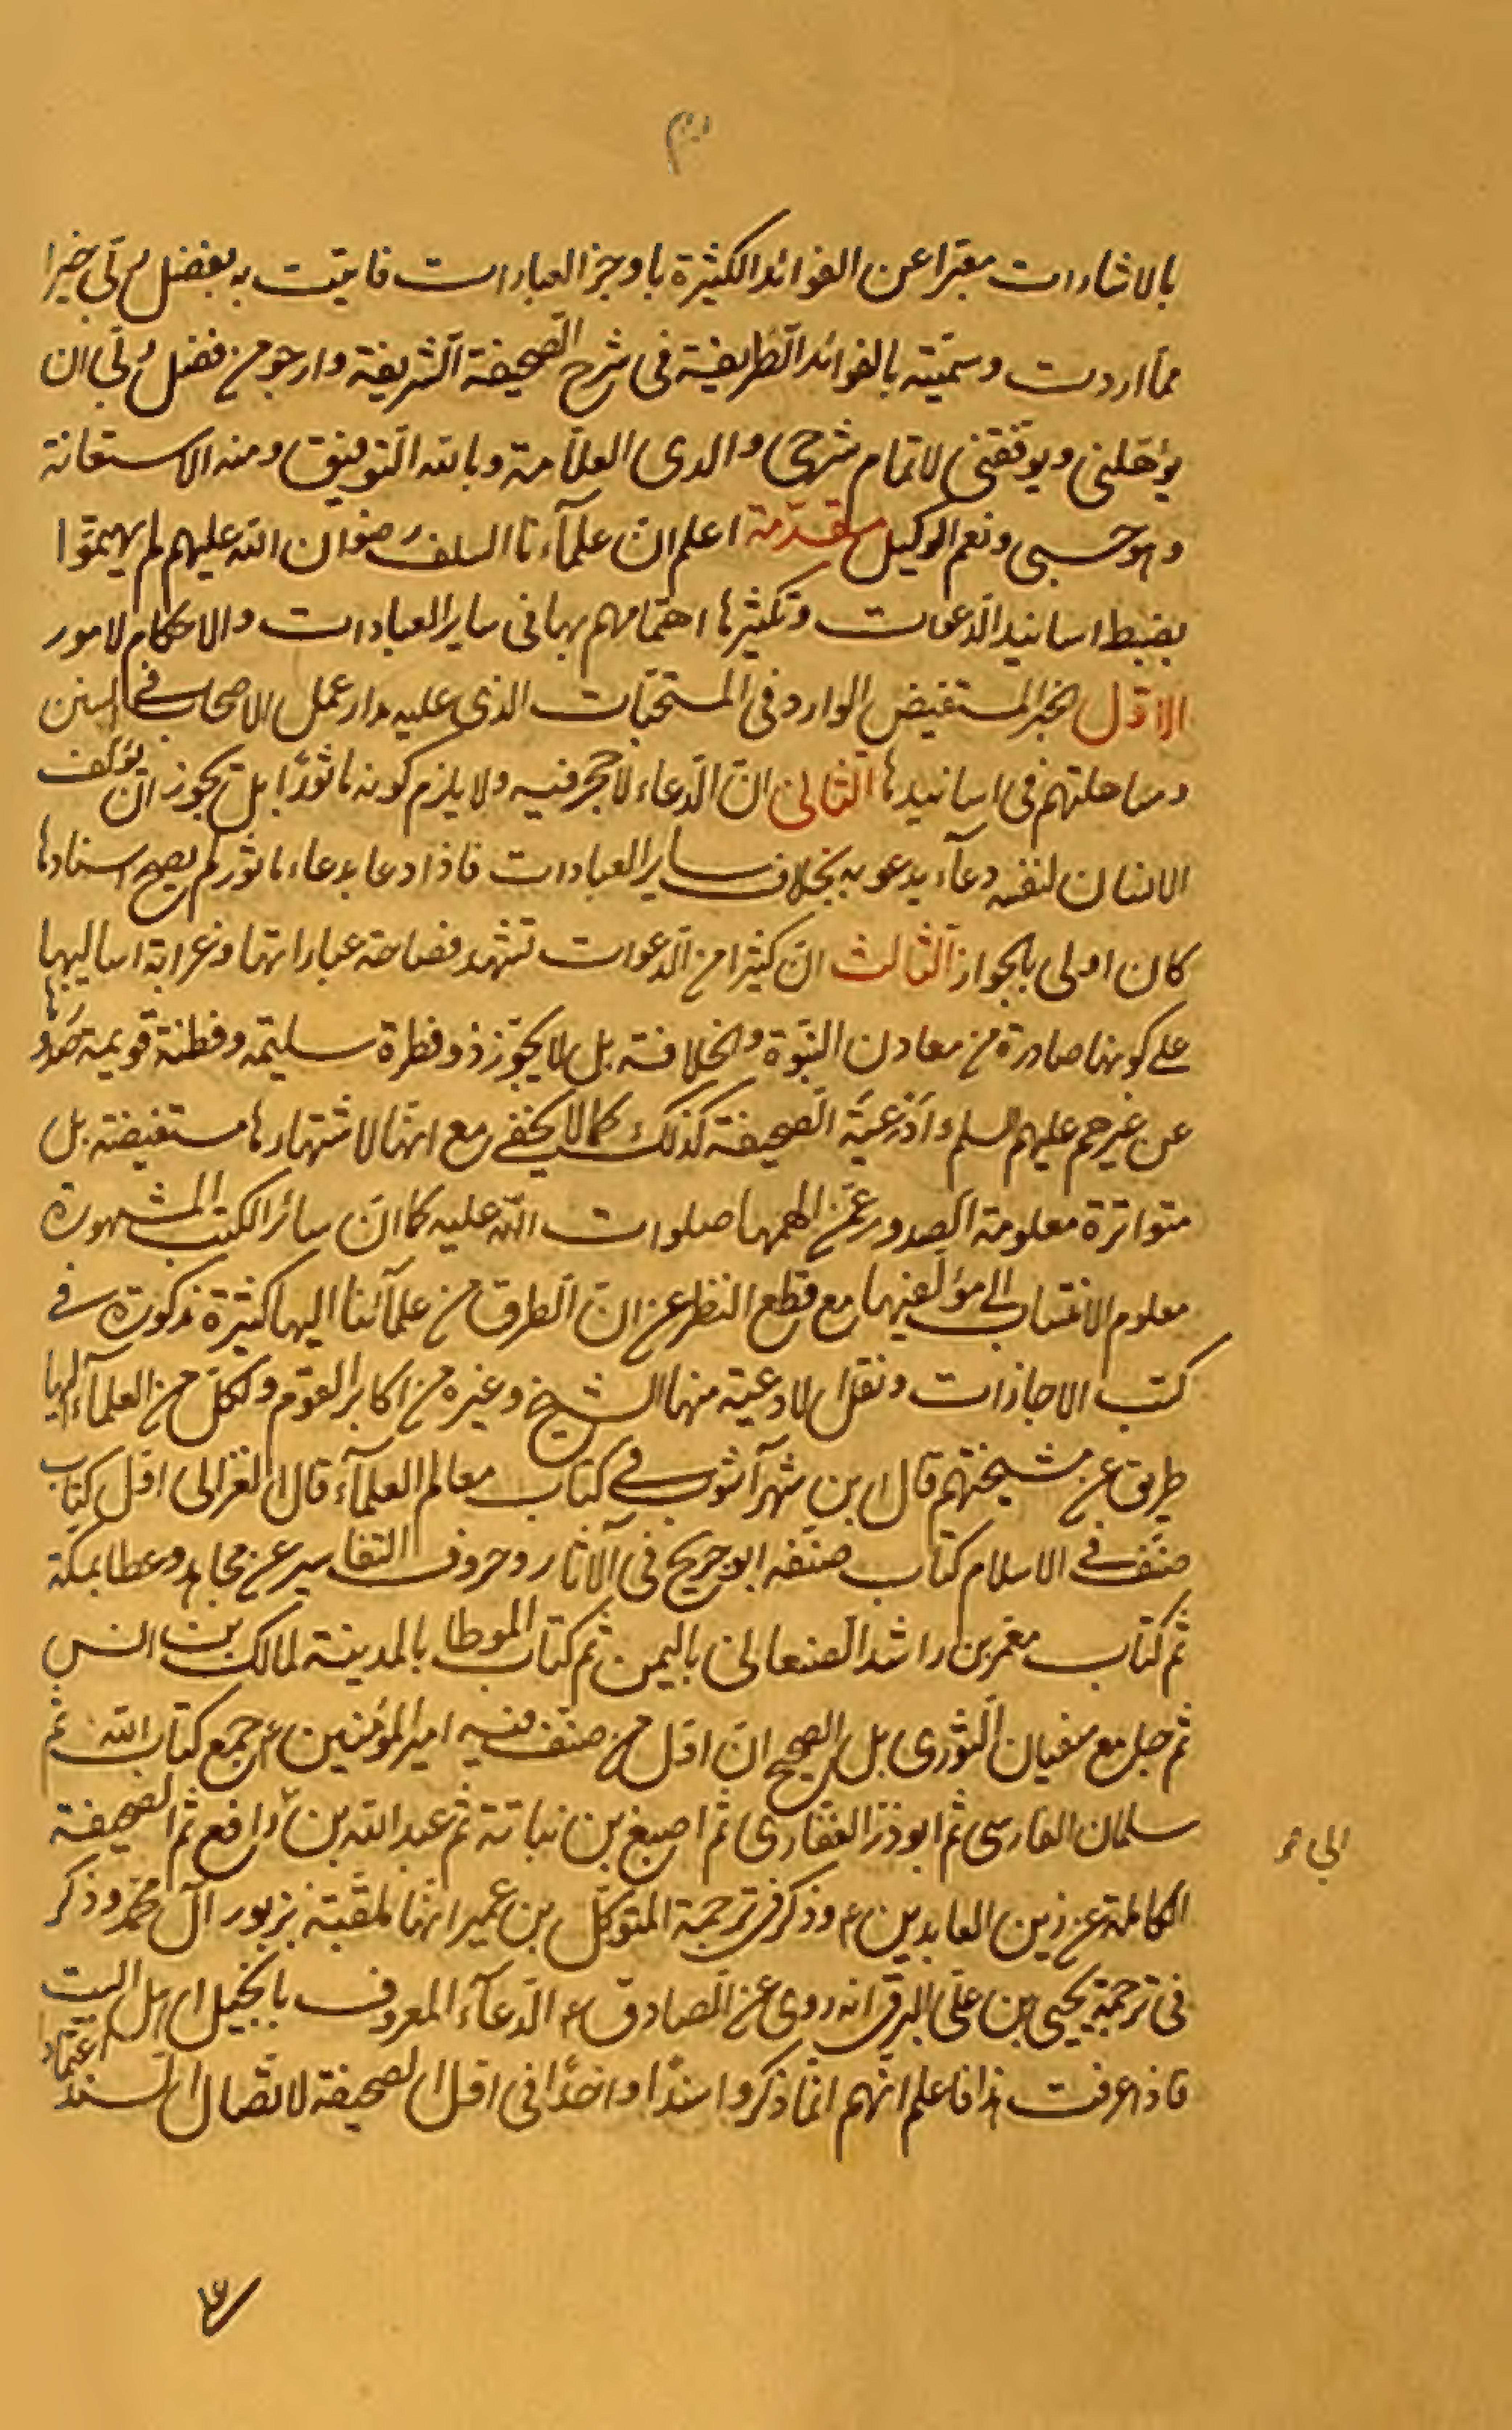 بالاشارات معبّرا عن الفوائد الكثيرة باوجز العبارات فاتيت به بفضل ربّي خيرا
ممّا اردت وسمّيته بالفوائد الطّريفة في شرح الصّحيفة الشّريفة وارجو من فضل ربّي ان
يؤهّلني ويوفّقني لاتمام شرحي والدي العلّامة وبالله التّوفيق ومنه الاستعانة
وهو حسبي ونعم الوكيل مقدّمة اعلم انّ علمآءنا السلف رضوان الله عليهم لم يهتمّوا
بضبط اسانيد الدّعوات وتكثيرها اهتمامهم بها في ساير العبادات والاحكام لامور
الاوّل الخبر المستفيض الوارد في المستحبّات الذي عليه مدار عمل الاصحاب في السنن
ومساهلتهم في اسانيدها الثّاني انّ الدّعاء لا حجر فيه ولا يلزم كونه ماثورًا بل يجوز ان يؤلّف
الانسان لنفسه دعآء يدعو به بخلاف ساير العبادات فاذا دعا بدعاء ماثور لم يصحّ اسنادها
كان اولى بالجواز الثّالث انّ كثيرا من الدّعوات تشهد فصاحة عباراتها وغرابة اساليبها
على كونها صادرة من معادن النّبوّة والخلافة بل لا يجوّز ذو فطرة سليمة وفطنة قويمة صدورها
عن غيرهم عليهم السلم وادعيّة الصّحيفة كذلك كما لا يخفى مع انّها لاشتهارها مستفيضة بل
متواترة معلومة الصدور عمّن الهمها صلوات الله عليه كما انّ سائر الكتب المشهورة
معلوم الانتساب الى مؤلّفيها مع قطع النظر عن انّ الطّرق من علمآئنا اليها كثيرة مذكورة في
كتب الاجازات ونقل الادعية منها الشيخ وغيره من اكابر القوم ولكلّ من العلمآء اليها
طريق عن مشيختهم قال ابن شهرآشوب في كتاب معالم العلمآء قال الغزالي اوّل كتاب
صنّف في الاسلام كتاب صنّفه ابو جريح في الآثار وحروف التفاسير عن مجاهد وعطا بمكّة
ثمّ كتاب معمر بن راشد الصنعاني باليمن ثمّ كتاب الموطا بالمدينة لمالك بن انس
ثمّ جامع سفيان الثّوري بل الصّحيح انّ اوّل من صنّف فيه امير المؤمنين ع جمع كتاب الله ثم
سلمان الفارسي ثمّ ابو ذرّ الغفّاري ثمّ اصبغ بن نباتة ثمّ عبد الله بن رافع ثمّ الصّحيفة
ابي
الكاملة عن زين العابدين ع وذكر في ترجمة المتوكّل بن عمير انها لمقّبة بزبور آل محمّد وذكر
في ترجمة يحيى بن علي البرقي انه روى عن الصّادق ع الدّعآء المعروف بانجيل اهل البيت
فاذا عرفت هذا فاعلم انّهم انّما ذكروا سندًا واحدًا في اوّل الصّحيفة لاتّصال السند اعتماد